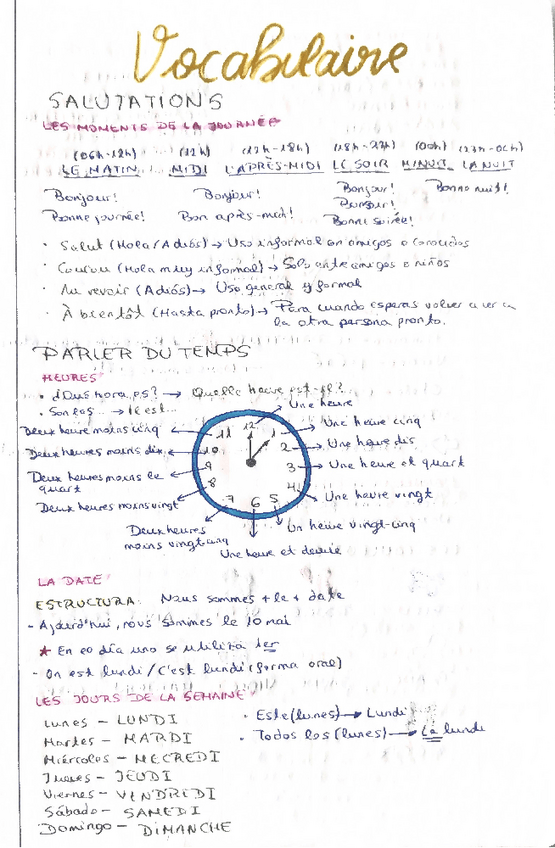 Vocabulaire
SALUTATIONS
LES MOMENTS DE LA JOURNÉE
(06h-12h) (12h) (12h-18h) (18h-23h) (00h) (23h-06h)
LE MATIN MIDI L'APRÈS-MIDI LE SOIR MINUIT LA NUIT
Bonjour! Bonjour! Bonjour! Bonne nuit!
Bonsoir!
Bonne journée! Bon après-midi! Bonne soirée!
· Salut (Hola/Adiós) → Uso informal con amigos o conocidos
· Coucou (Hola muy informal) → Solo entre amigos o niños
· Au revoir (Adiós) → Uso general y formal
· À bientôt (Hasta pronto) → Para cuando esperas volver a ver a
la otra persona pronto.
PARLER DU TEMPS
HEURES
• ¿Qué hora es? → Quelle heure est-il?
• Son las... → Il est...
Une heure
Deux heure moins cinq 11 12 1 Une heure cinq
Deux heures moins dix 10 2 Une heure dix
Deux heures moins le 9 3 Une heure et quart
quart 8 4 Une heure vingt
Deux heures moins vingt 7 6 5
Deux heures Un heure vingt-cinq
moins vingt-cinq
Une heure et demie
LA DATE
ESTRUCTURA: Nous sommes + le + date
- Aujourd'hui, nous sommes le 10 mai
★ En el día uno se utiliza 1er
- On est lundi / C'est lundi (forma oral)
LES JOURS DE LA SEMAINE
Lunes - LUNDI • Este (lunes) → Lundi
Martes - MARDI • Todos los (lunes) → Le lundi
Miércoles - MECREDI
Jueves - JEUDI
Viernes - VENDREDI
Sábado - SAMEDI
Domingo - DIMANCHE